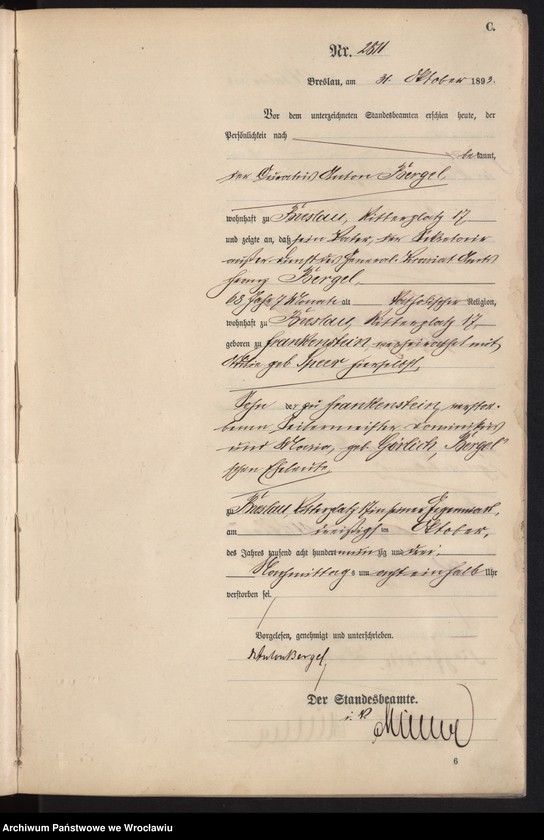 C.
Nr. 2511
Breslau, am 31. Oktober 1893.
Vor dem unterzeichneten Standesbeamten erschien heute, der
Persönlichkeit nach
bekannt,
der Anton Bergel
wohnhaft zu Breslau, Ritterplatz 17
und zeigte an, daß sein Vater, der Sekretair
außer Dienst des General-Vicariat Amts
Bergel,
63 Jahr 7 Monate alt katholischer Religion,
wohnhaft zu Breslau, Ritterplatz 17,
geboren zu Frankenstein, verheirathet mit
geb Speer hierselbst,
Sohn der zu Frankenstein, verstor-
benen Seilermeister Dominikus
und Maria, geb. Görlich Bergel'
schen Eheleute
zu Breslau Ritterplatz 17 in seiner Gegenwart,
am dreißigsten Oktober,
des Jahres tausend acht hundert neunzig und drei,
Nachmittags um acht einhalb Uhr
verstorben sei.
Vorgelesen, genehmigt und unterschrieben.
Anton Bergel,
Der Standesbeamte.
i. V.
6
Archiwum Państwowe we Wrocławiu